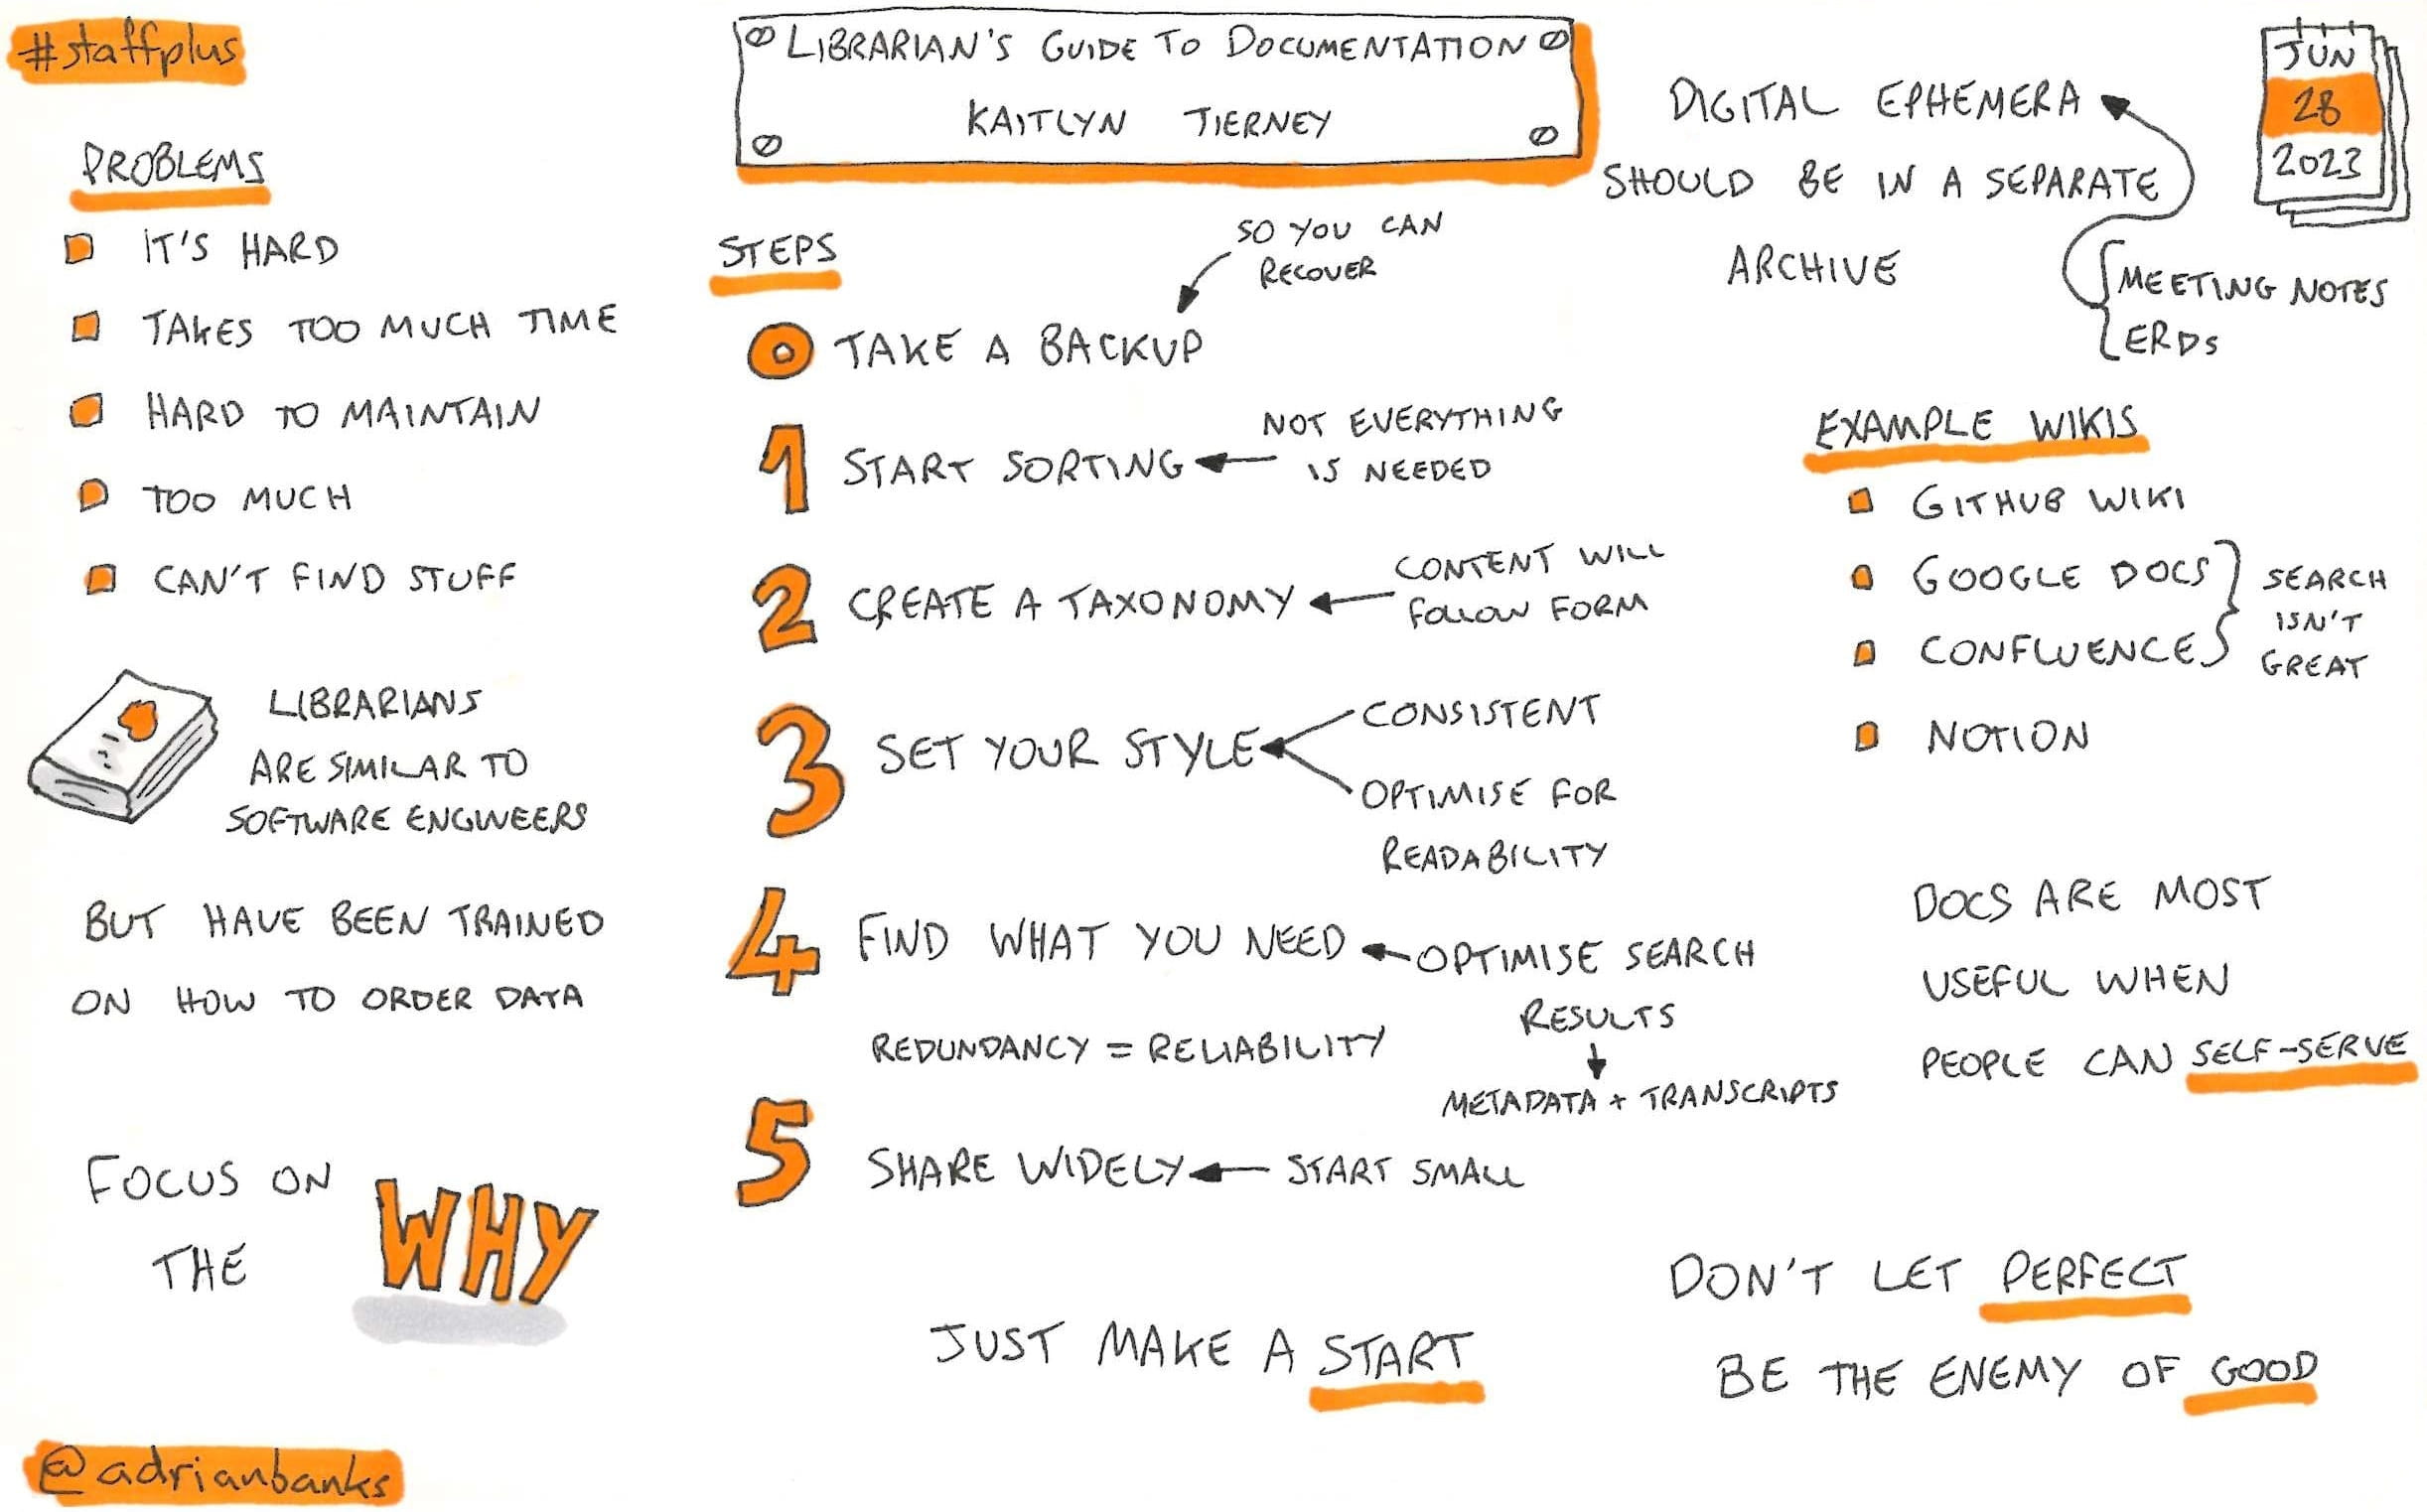 #staffplus
LIBRARIAN'S GUIDE TO DOCUMENTATION
KAITLYN TIERNEY
JUN
28
2023
PROBLEMS
IT'S HARD
TAKES TOO MUCH TIME
HARD TO MAINTAIN
TOO MUCH
CAN'T FIND STUFF
LIBRARIANS
ARE SIMILAR TO
SOFTWARE ENGINEERS
BUT HAVE BEEN TRAINED
ON HOW TO ORDER DATA
FOCUS ON
THE WHY
@adrianbanks
STEPS
SO YOU CAN
RECOVER
0 TAKE A BACKUP
1 START SORTING
NOT EVERYTHING
IS NEEDED
2 CREATE A TAXONOMY
CONTENT WILL
FOLLOW FORM
3 SET YOUR STYLE
CONSISTENT
OPTIMISE FOR
READABILITY
4 FIND WHAT YOU NEED
OPTIMISE SEARCH
RESULTS
METADATA + TRANSCRIPTS
REDUNDANCY = RELIABILITY
5 SHARE WIDELY
START SMALL
JUST MAKE A START
DIGITAL EPHEMERA
SHOULD BE IN A SEPARATE
ARCHIVE
MEETING NOTES
ERDs
EXAMPLE WIKIS
GITHUB WIKI
GOOGLE DOCS
CONFLUENCE
SEARCH
ISN'T
GREAT
NOTION
DOCS ARE MOST
USEFUL WHEN
PEOPLE CAN SELF-SERVE
DON'T LET PERFECT
BE THE ENEMY OF GOOD